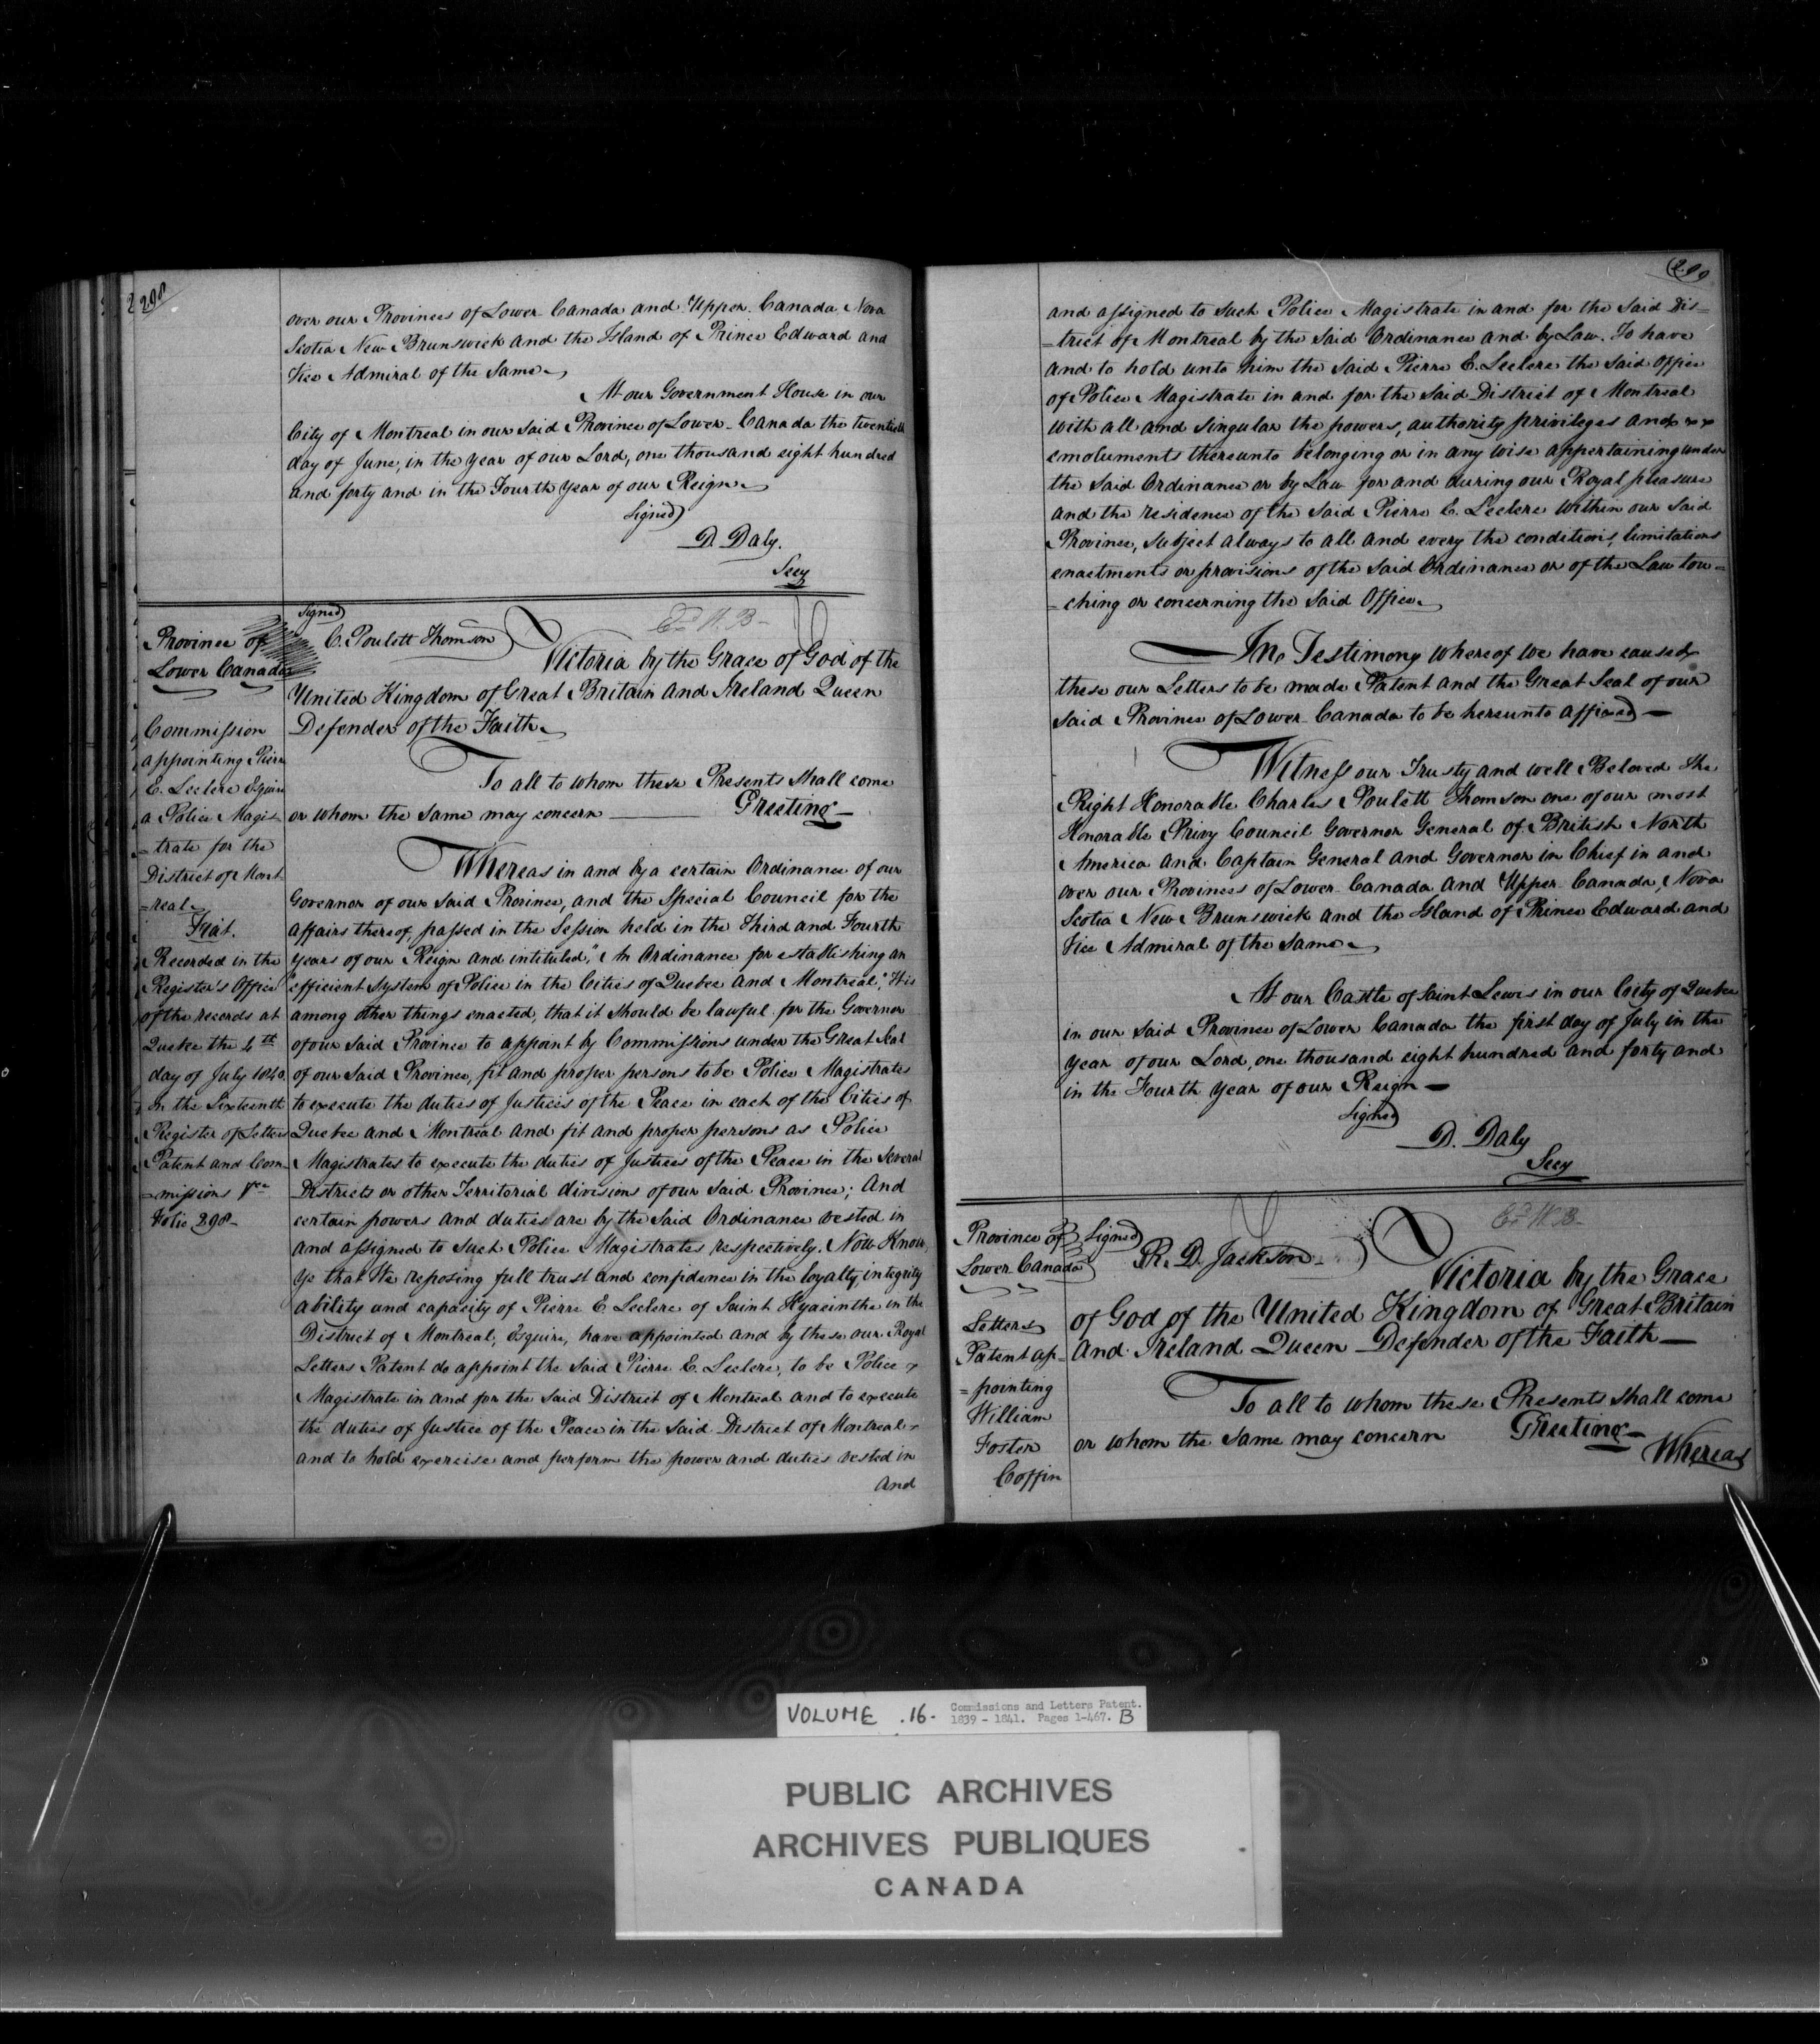 298
over our Provinces of Lower Canada and Upper Canada Nova
Scotia New Brunswick and the Island of Prince Edward and
Vice Admiral of the Same
At our Government House in our
City of Montreal in our said Province of Lower Canada the twentieth
day of June, in the year of our Lord, one thousand eight hundred
and forty and in the Fourth year of our Reign
Signed)
D. Daly.
Secy
Province of
Lower Canada
Commission
appointing Pierre
E. Leclere Esquire
a Police Magis
=trate for the
District of Mont
=real
Fiat.
Recorded in the
Register's Office
of the records at
Quebec the 4th
day of July 1840.
in the Sixteenth
Register of Letters
Patent and Com
=missions
Folio 298-
Signed)
C. Poulett Thomson
Victoria by the Grace of God of the
United Kingdom of Great Britain and Ireland Queen
Defender of the Faith
To all to whom these Presents shall come
or whom the same may concern Greeting
Whereas in and by a certain Ordinance of our
Governor of our said Province, and the Special Council for the
affairs thereof passed in the Session held in the Third and Fourth
years of our Reign and intituled, "An Ordinance for establishing an
"efficient System of Police in the Cities of Quebec and Montreal," it is
among other things enacted, that it should be lawful for the Governor
of our said Province to appoint by Commissions under the Great Seal
of our said Province, fit and proper persons to be Police Magistrates
to execute the duties of Justices of the Peace in each of the Cities of
Quebec and Montreal and fit and proper persons as Police
Magistrates to execute the duties of Justices of the Peace in the several
Districts or other Territorial divisions of our said Province; And
certain powers and duties are by the said Ordinance vested in
and assigned to such Police Magistrates respectively. Now Know
ye that We reposing full trust and confidence in the loyalty integrity
ability and capacity of Pierre E Leclere of Saint Hyacinthe in the
District of Montreal, Esquire, have appointed and by these our Royal
Letters Patent do appoint the said Pierre E. Leclere, to be Police
Magistrate in and for the said District of Montreal and to execute
the duties of Justice of the Peace in the said District of Montreal
and to hold exercise and perform the power and duties vested in
and
299
and assigned to such Police Magistrate in and for the said Dis=
=trict of Montreal by the said Ordinance and by Law. To have
and to hold unto him the said Pierre E. Leclere the said Office
of Police Magistrate in and for the said District of Montreal
with all and singular the powers, authority privileges and
emoluments thereunto belonging or in any wise appertaining under
the said Ordinance or by Law for and during our Royal pleasure
and the residence of the said Pierre E. Leclere within our said
Province, subject always to all and every the conditions, limitations
enactments or provisions of the said Ordinance or of the Law tou=
=ching or concerning the said Office
In Testimony whereof we have caused
these our Letters to be made Patent and the Great Seal of our
said Province of Lower Canada to be hereunto affixed
Witness our Trusty and well Beloved the
Right Honorable Charles Poulett Thomson one of our most
Honorable Privy Council Governor General of British North
America and Captain General and Governor in Chief in and
over our Provinces of Lower Canada and Upper Canada, Nova
Scotia New Brunswick and the Island of Prince Edward and
Vice Admiral of the Same
At our Castle of Saint Lewis in our City of Quebec
in our said Province of Lower Canada the first day of July in the
year of our Lord, one thousand eight hundred and forty and
in the Fourth year of our Reign
Signed
D. Daly
Secy
Province of
Lower Canada
Letters
Patent ap=
=pointing
William
Foster
Coffin
Signed)
R. D. Jackson
Victoria by the Grace
of God of the United Kingdom of Great Britain
and Ireland Queen Defender of the Faith
To all to whom these Presents shall come
or whom the same may concern Greeting
Whereas
VOLUME .16. Commissions and Letters Patent.
1839 - 1841. Pages 1-467. B
PUBLIC ARCHIVES
ARCHIVES PUBLIQUES
CANADA